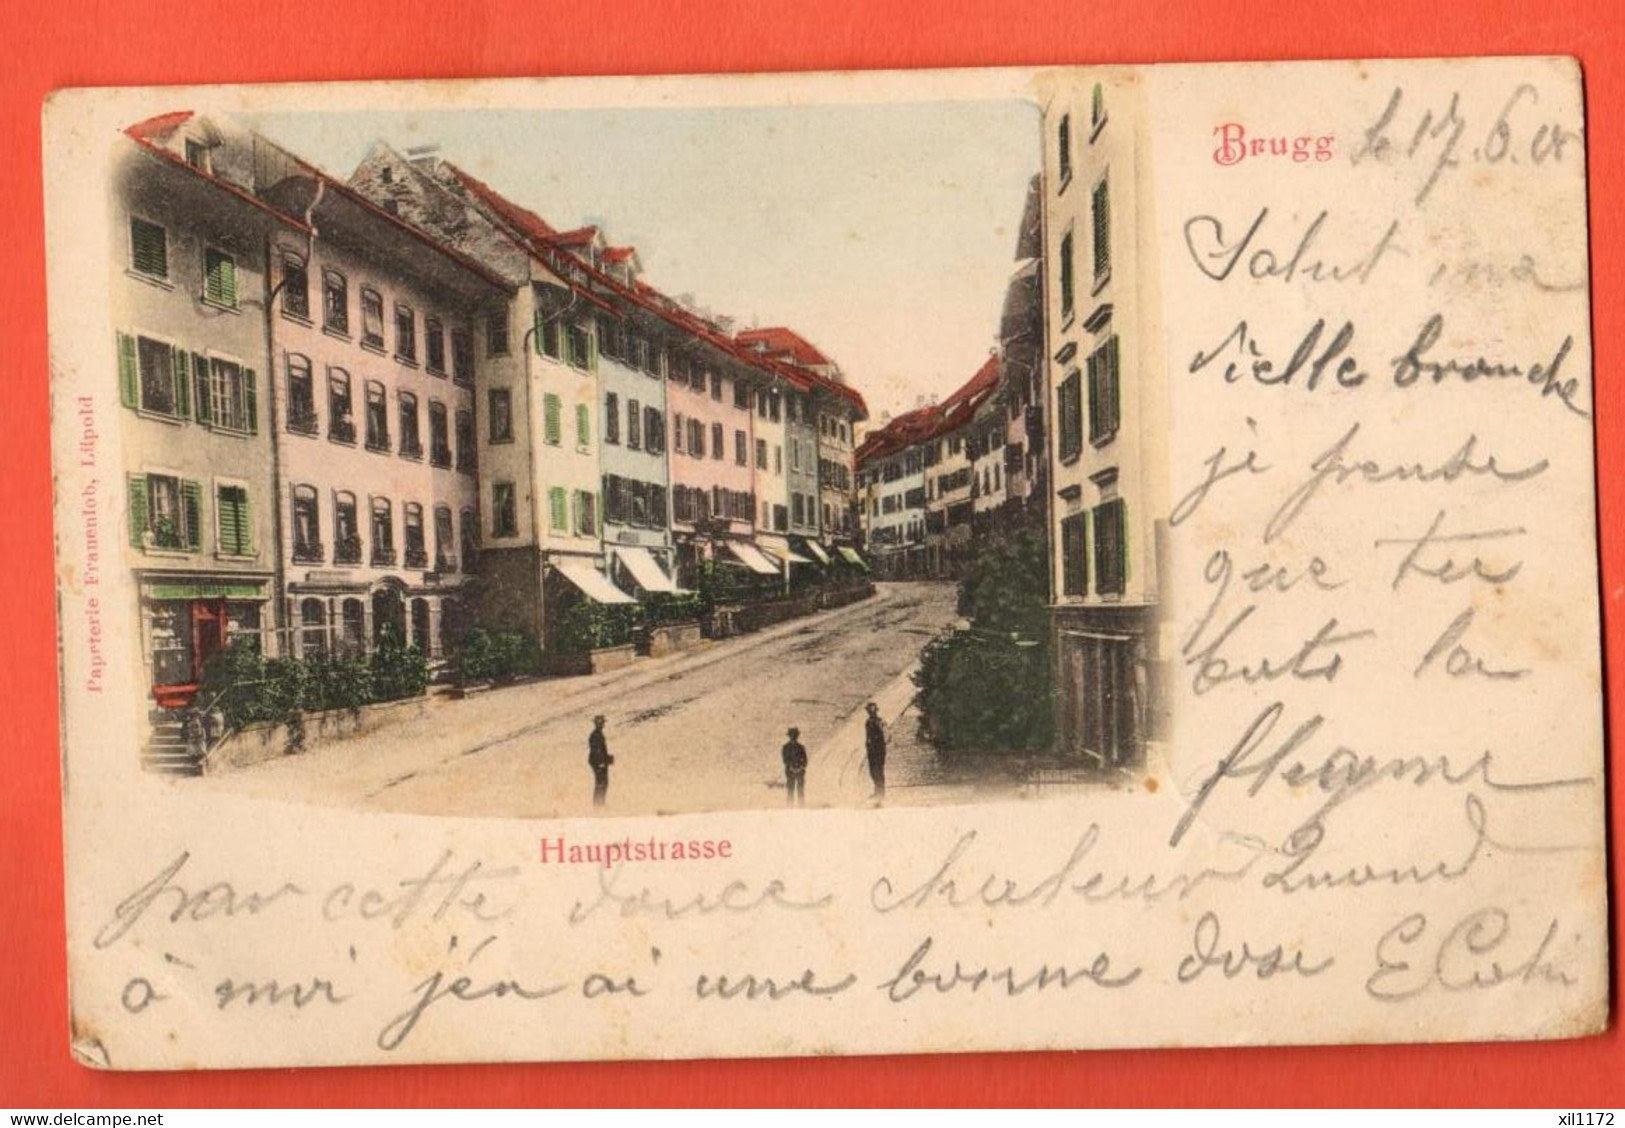 Brugg le 17.6.
Salut ma
vielle branche
je pense
que tu
bats la
flegme
Papeterie Frauenlob, Lüpold
Hauptstrasse
par cette douce chaleur Quand
à moi j'én ai une bonne dose
xil1172